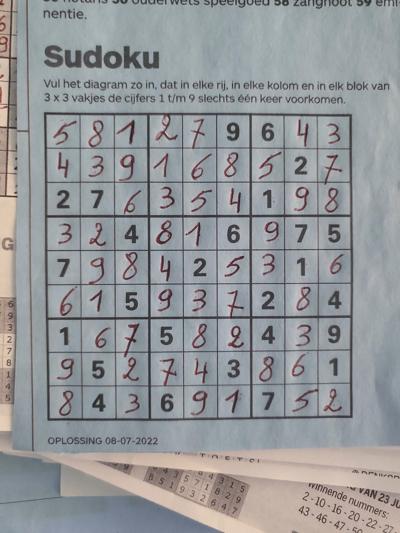 ouderwets speelgoed 58 zangnoot 59
nentie.
Sudoku
Vul het diagram zo in, dat in elke rij, in elke kolom en in elk blok van
3 x 3 vakjes de cijfers 1 t/m 9 slechts één keer voorkomen.
5 8 1 2 7 9 6 4 3
4 3 9 1 6 8 5 2 7
2 7 6 3 5 4 1 9 8
3 2 4 8 1 6 9 7 5
7 9 8 4 2 5 3 1 6
6 1 5 9 3 7 2 8 4
1 6 7 5 8 2 4 3 9
9 5 2 7 4 3 8 6 1
8 4 3 6 9 1 7 5 2
OPLOSSING 08-07-2022
VAN 23 JU
Winnende nummers:
2-10-16-20-22-27
43-46-47-50